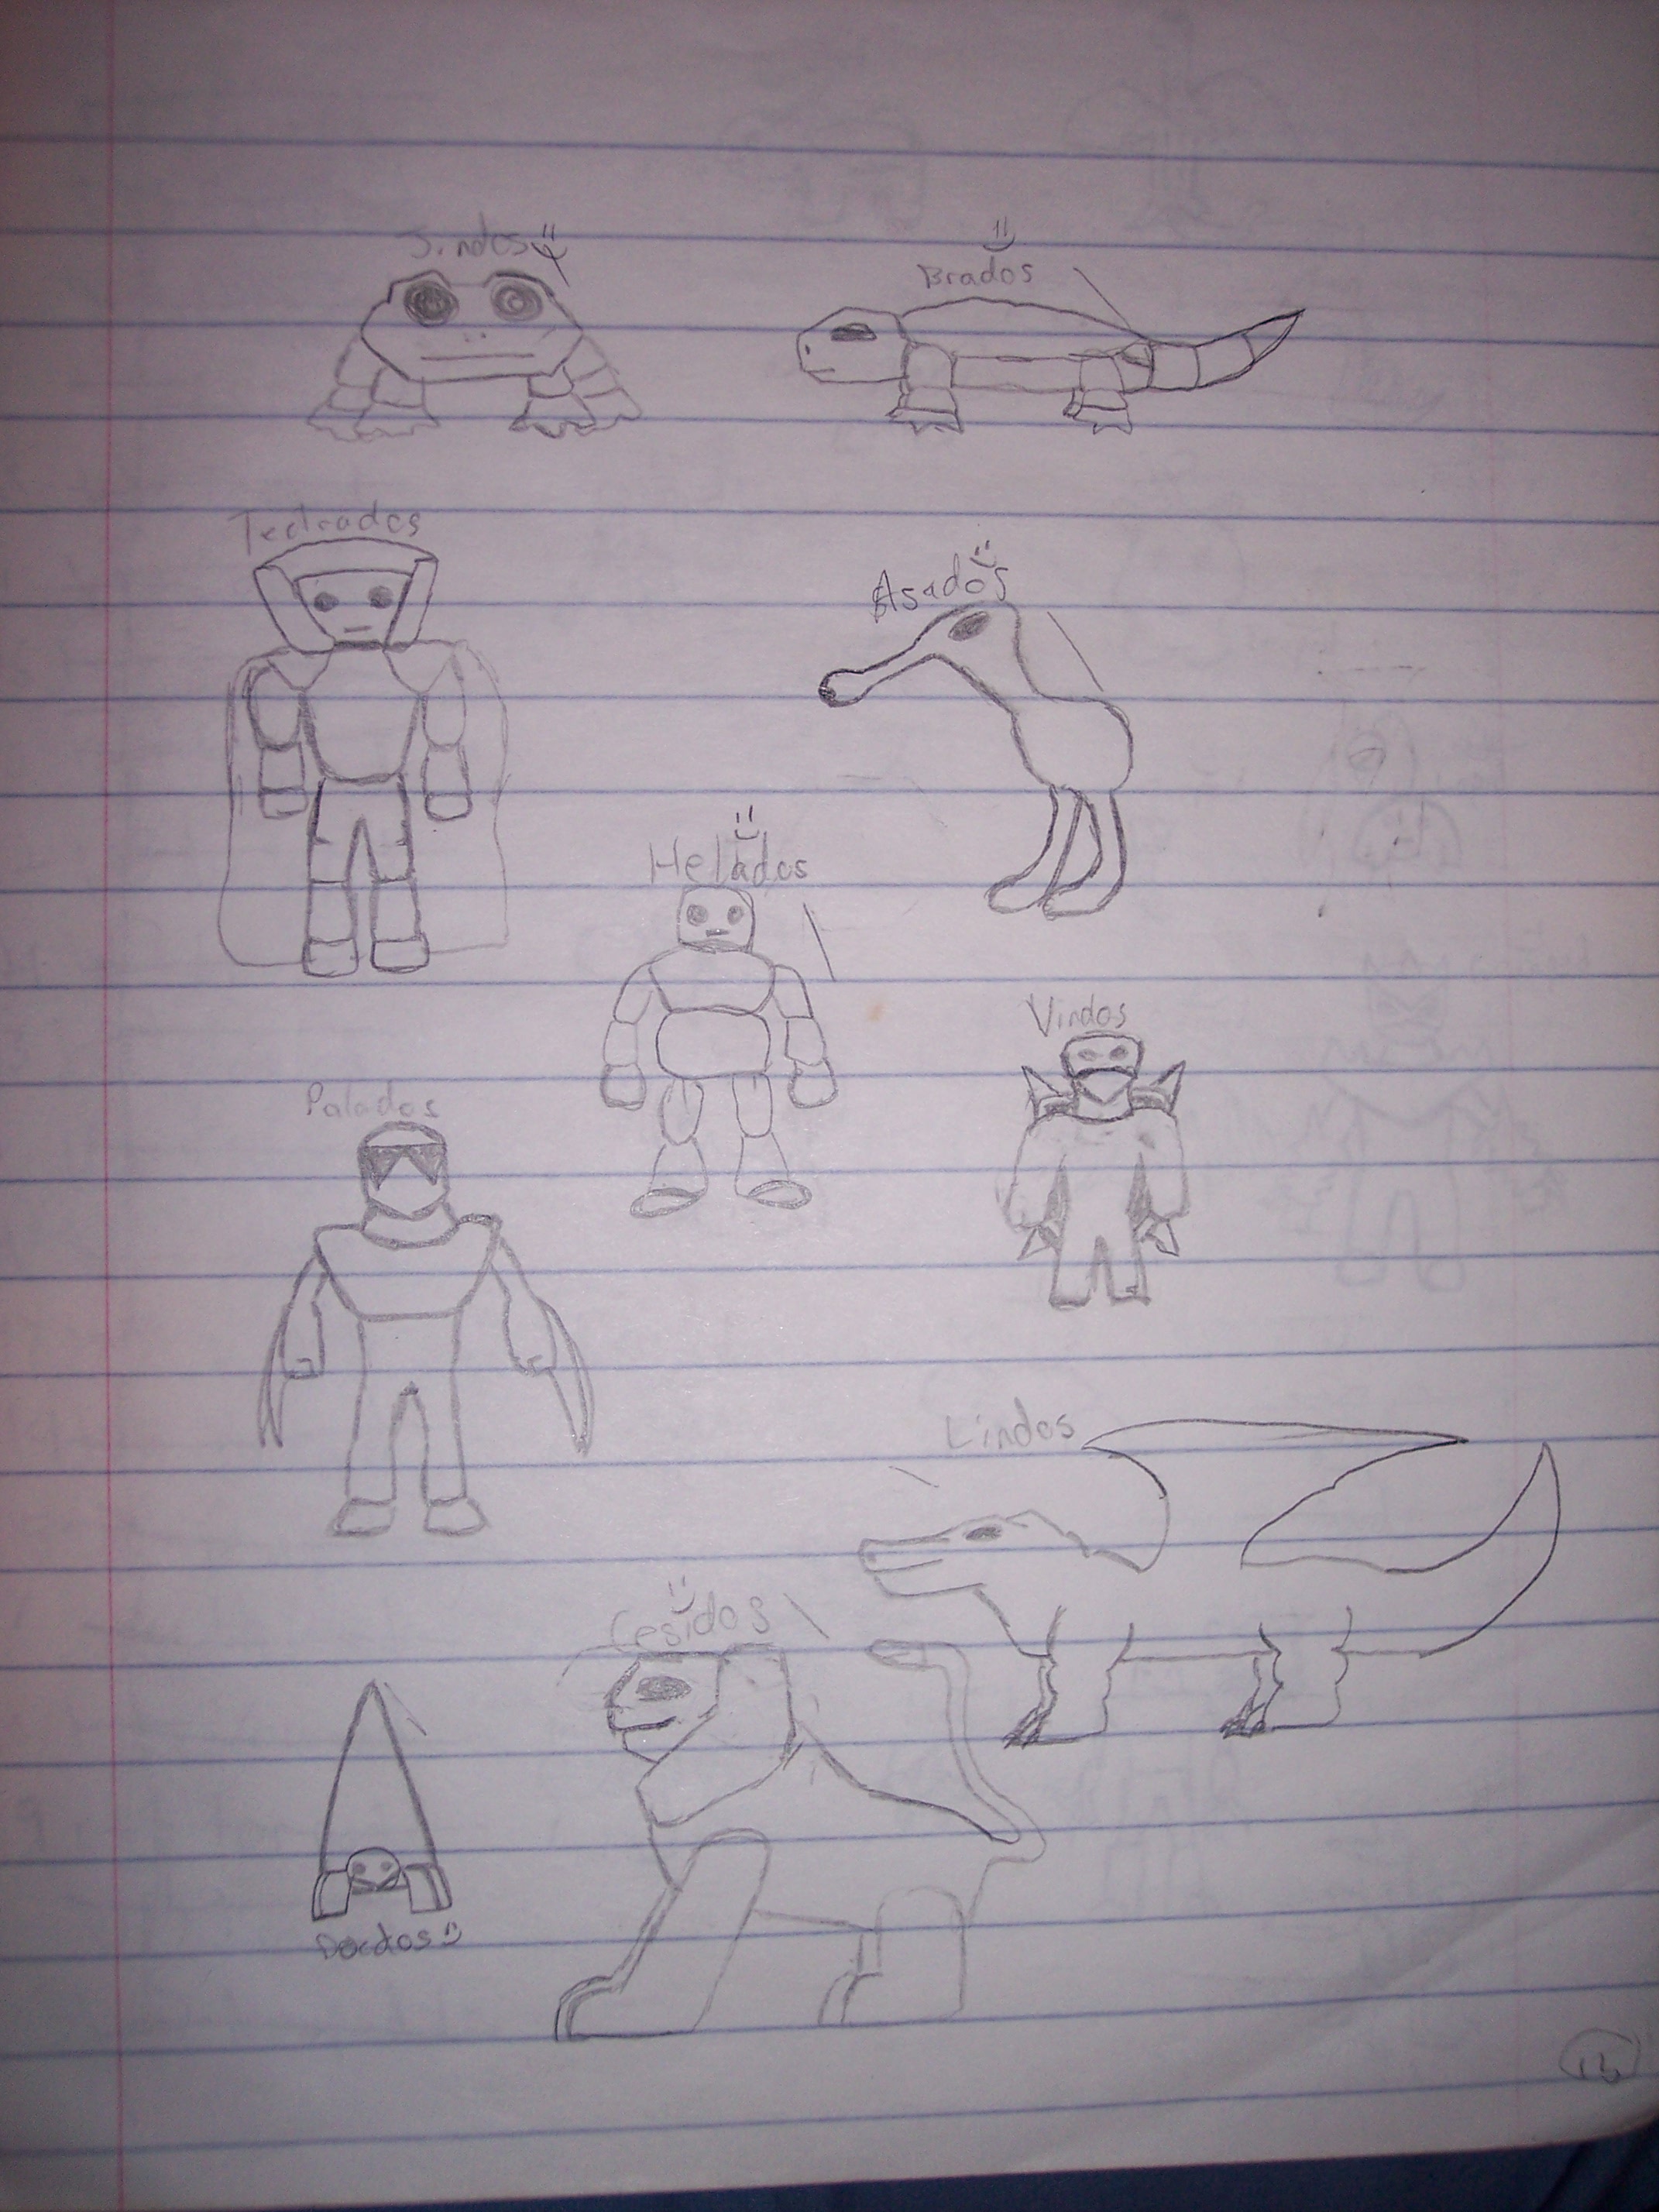 Jindos
Brados
Tedrados
Asados
Helados
Vindos
Palados
Lindos
Cesidos